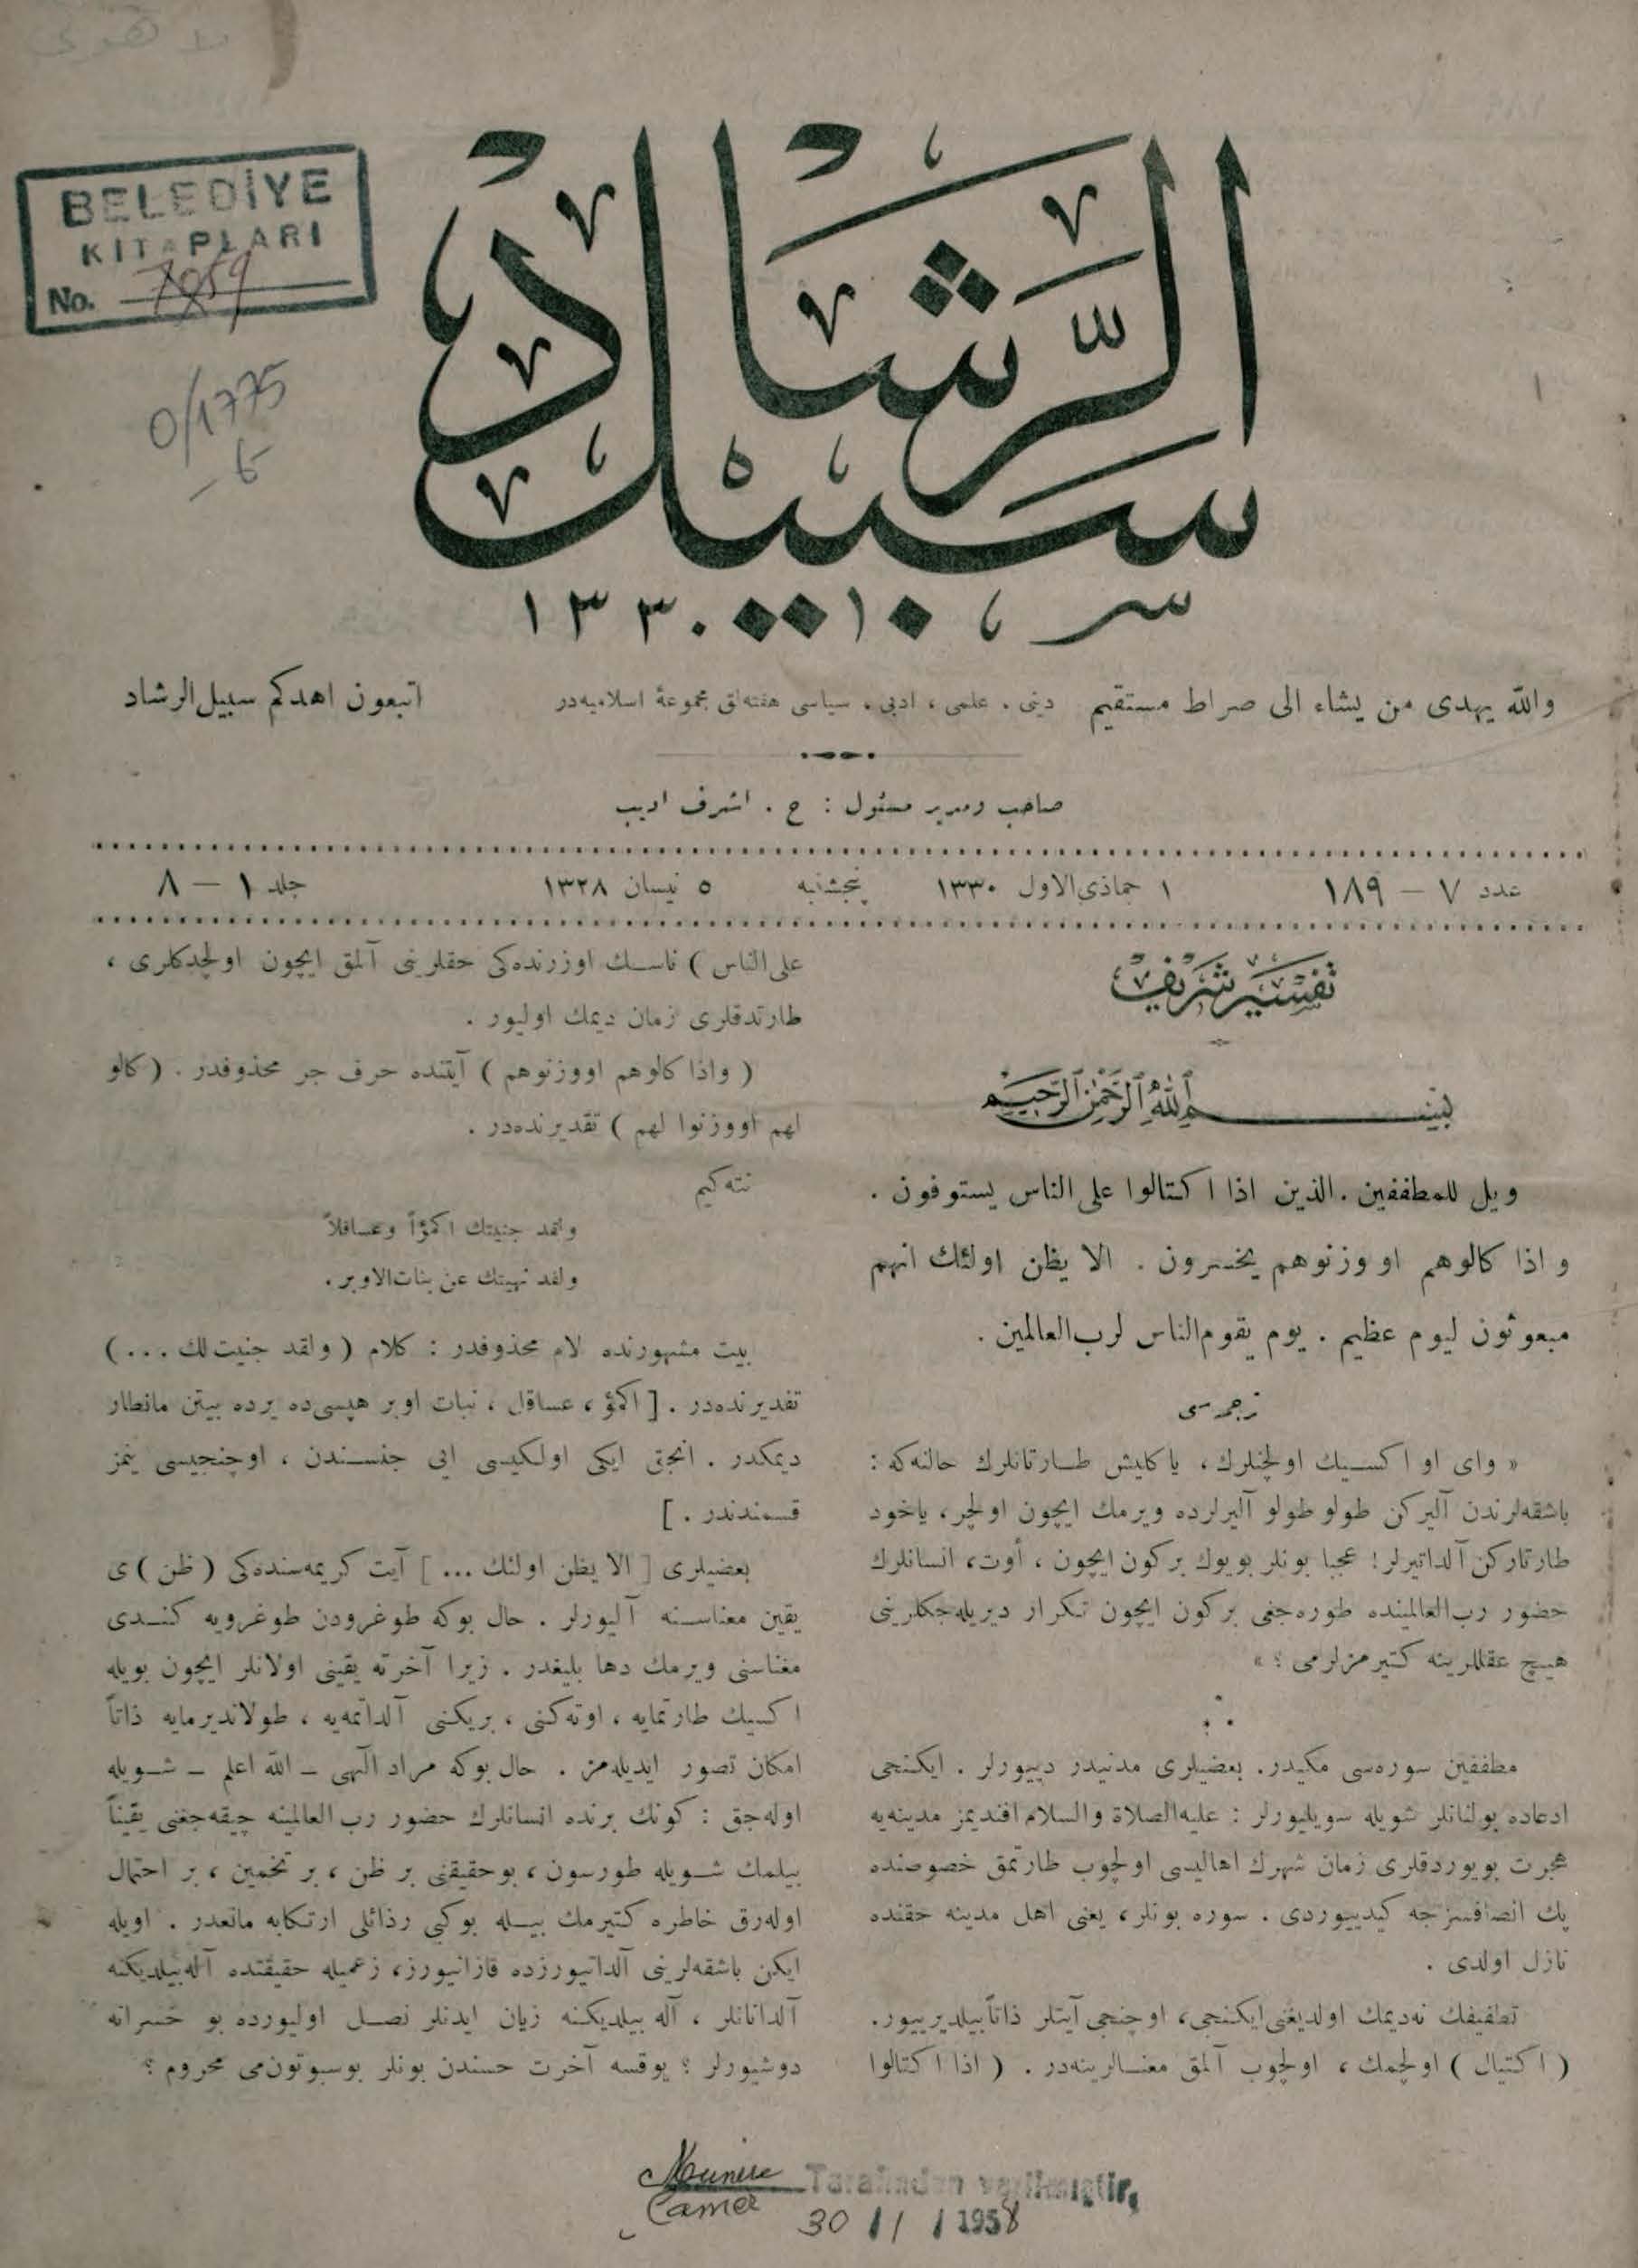 BELEDİYE
KITAPLARI
No. 7059
0/1775
-6
سبيل الرشاد
١٣٣٠
والله يهدى من يشاء الى صراط مستقيم
دينى ، علمى ، ادبى ، سياسى هفته‌لق مجموعۀ اسلاميه‌در
اتبعون اهدكم سبيل‌الرشاد
صاحب ومدير مسئول : ح . اشرف اديب
عدد ٧ — ١٨٩
١ جماذى‌الاول ١٣٣٠
پنجشنبه
٥ نيسان ١٣٢٨
جلد ١ — ٨
تفسير شريف
بسم الله الرحمن الرحيم
ويل للمطففين . الذين اذا اكتالوا على الناس يستوفون .
و اذا كالوهم او وزنوهم يخسرون . الا يظن اولئك انهم
مبعوثون ليوم عظيم . يوم يقوم‌الناس لرب‌العالمين .
ترجمه‌سى
« واى او اكسيك اولچنلرك ، ياكليش طارتانلرك حالنه‌كه :
باشقه‌لرندن آليركن طولو طولو آليرلرده ويرمك ايچون اولچر، ياخود
طارتاركن آلداتيرلر! عجبا بونلر بويوك بركون ايچون ، أوت، انسانلرك
حضور رب‌العالمينده طوره‌جغى بركون ايچون تكرار ديريله‌جكلرينى
هيچ عقللرينه كتيرمزلرمى ؟ »
مطففين سوره‌سى مكيدر. بعضيلرى مدنيدر دييورلر . ايكنجى
ادعاده بولنانلر شويله سويليورلر : عليه‌الصلاة والسلام افنديمز مدينه‌يه
هجرت بويوردقلرى زمان شهرك اهاليسى اولچوب طارتمق خصوصنده
پك انصافسزجه كيدييوردى . سوره بونلر، يعنى اهل مدينه حقنده
نازل اولدى .
تطفيفك نه‌ديمك اولديغنى ايكنجى، اوچنجى آيتلر ذاتاً بيلديرييور.
( اكتيال ) اولچمك ، اولچوب آلمق معنالرينه‌در . ( اذا اكتالوا
على‌الناس ) ناسك اوزرنده‌كى حقلرينى آلمق ايچون اولچدكلرى ،
طارتدقلرى زمان ديمك اوليور .
( واذا كالوهم اووزنوهم ) آيتنده حرف جر محذوفدر . ( كالو
لهم اووزنوا لهم ) تقديرنده‌در .
نته‌كيم
ولقد جنيتك اكمؤاً وعساقلاً
ولقد نهيتك عن بنات‌الاوبر .
بيت مشهورنده لام محذوفدر : كلام ( ولقد جنيت‌لك ... )
تقديرنده‌در . [ اكمؤ ، عساقل ، نبات اوبر هپسى‌ده يرده بيتن مانطار
ديمكدر . انجق ايكى اولكيسى ايى جنسندن ، اوچنجيسى ينمز
قسمندندر . ]
بعضيلرى [ الا يظن اولئك ... ] آيت كريمه‌سنده‌كى ( ظن ) ى
يقين معناسنه آليورلر . حال بوكه طوغرودن طوغرويه كندى
معناسنى ويرمك دها بليغدر . زيرا آخرته يقينى اولانلر ايچون بويله
اكسيك طارتمايه ، اوته‌كنى ، بريكنى آلداتمه‌يه ، طولانديرمايه ذاتاً
امكان تصور ايديله‌مز . حال بوكه مراد الٓهى – الله اعلم – شويله
اوله‌جق : كونك برنده انسانلرك حضور رب‌العالمينه چيقه‌جغنى يقيناً
بيلمك شويله طورسون ، بوحقيقتى بر ظن ، بر تخمين ، بر احتمال
اوله‌رق خاطره كتيرمك بيله بوكبى رذائلى ارتكابه مانعدر . اويله
ايكن باشقه‌لرينى آلداتيورزده قازانيورز، زعميله حقيقتده آله‌بيلديكنه
آلدانانلر ، آله بيلديكنه زيان ايدنلر نصل اوليورده بو خسرانه
دوشيورلر ؟ يوقسه آخرت حسندن بونلر بوسبوتون‌مى محروم ؟
Munire Tarafından verilmiştir.
Camer
30 / 1 / 1958